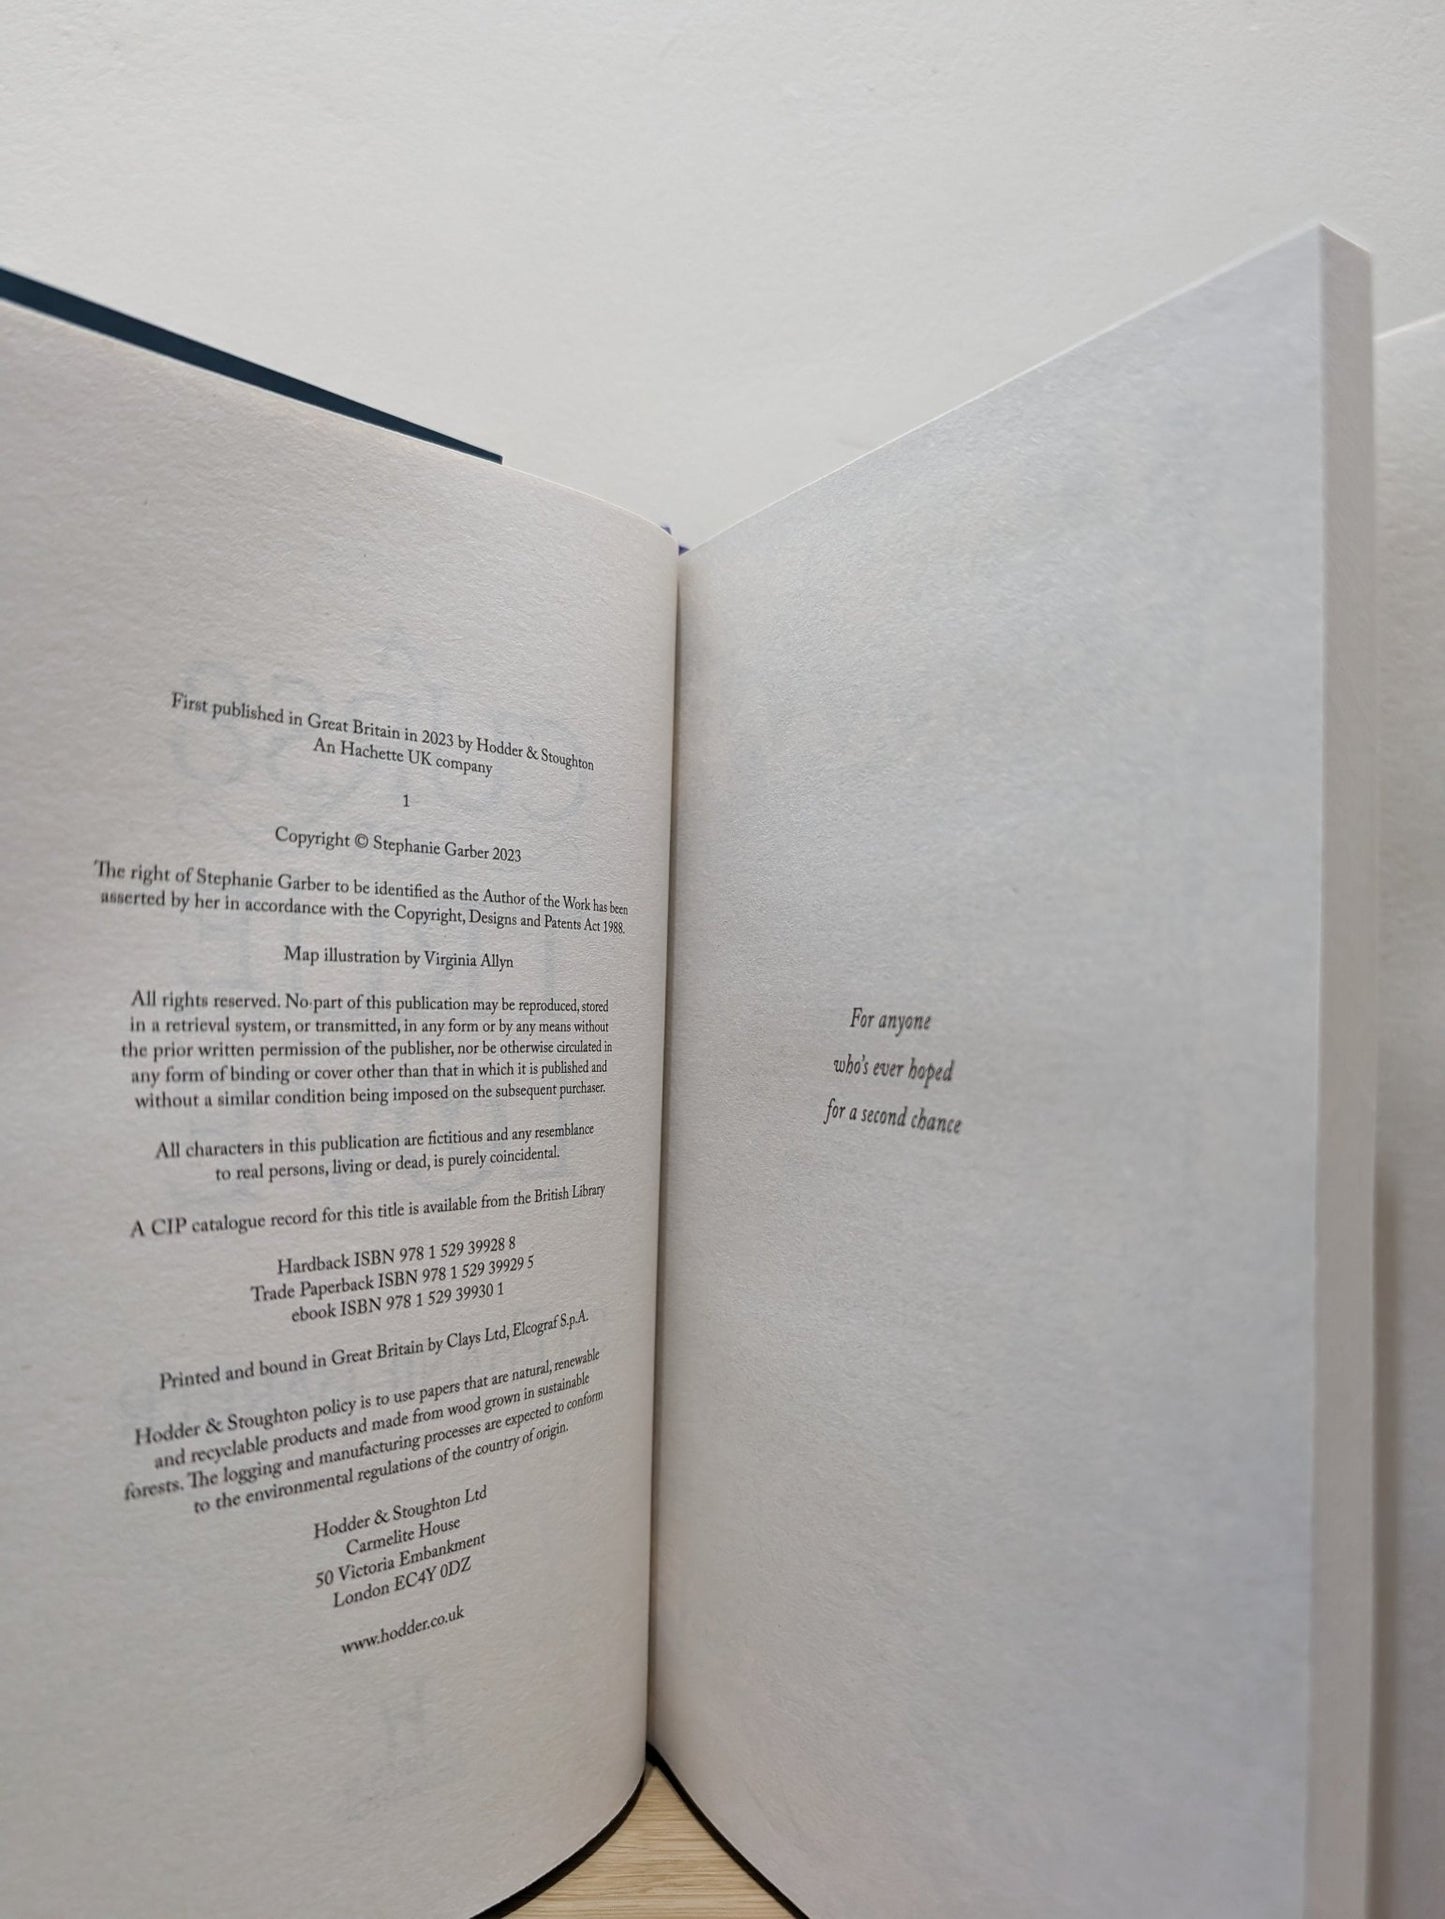 First published in Great Britain in 2023 by Hodder & Stoughton
An Hachette UK company
1
Copyright © Stephanie Garber 2023
The right of Stephanie Garber to be identified as the Author of the Work has been
asserted by her in accordance with the Copyright, Designs and Patents Act 1988.
Map illustration by Virginia Allyn
All rights reserved. No part of this publication may be reproduced, stored
in a retrieval system, or transmitted, in any form or by any means without
the prior written permission of the publisher, nor be otherwise circulated in
any form of binding or cover other than that in which it is published and
without a similar condition being imposed on the subsequent purchaser.
All characters in this publication are fictitious and any resemblance
to real persons, living or dead, is purely coincidental.
A CIP catalogue record for this title is available from the British Library
Hardback ISBN 978 1 529 39928 8
Trade Paperback ISBN 978 1 529 39929 5
ebook ISBN 978 1 529 39930 1
Printed and bound in Great Britain by Clays Ltd, Elcograf S.p.A.
Hodder & Stoughton policy is to use papers that are natural, renewable
and recyclable products and made from wood grown in sustainable
forests. The logging and manufacturing processes are expected to conform
to the environmental regulations of the country of origin.
Hodder & Stoughton Ltd
Carmelite House
50 Victoria Embankment
London EC4Y 0DZ
www.hodder.co.uk
For anyone
who's ever hoped
for a second chance